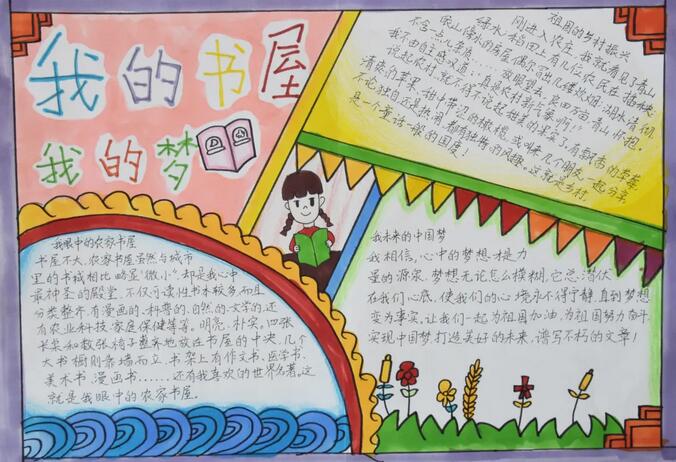 我的书屋
我的梦
祖国的乡村振兴
刚进入农庄,我就看见了青山
绿水,稻田上有几位农民在插秧,
依山傍水的房屋偶尔冒出几缕炊烟,湖水清彻
不含一点儿杂质……放眼望去,良田万亩,青山怀抱。
我不由自主感叹道:真是农村新气象啊!!
说起农村,就不得不说起甜美的果实了,有飘香的
清脆的苹果,甜中带
不论独自还是热闹,都有独特的风趣。这就是乡村,
是一个童话一般的国度!
我眼中的农家书屋
书屋不大,农家书屋虽然与城市
里的书城相比略显“微小”,却是我心中
最神圣的殿堂,不仅可读性书本较多,而且
分类整齐,有漫画的、科普的、自然的、文学的,还
有农业科技、家庭保健等等。明亮、朴实。四张
长桌和数张椅子整齐地放在书屋的中央,几个
大书橱则靠墙而立,书架上有作文书、医学书、
美术书、漫画书……还有我喜欢的世界名著。这
就是我眼中的农家书屋。
我未来的中国梦
我相信,心中的梦想才是力
量的源泉,梦想无论怎么模糊,它总潜伏
在我们心底,使我们的心境永不得宁静,直到梦想
变为事实,让我们一起为祖国加油,为祖国努力奋斗,
实现中国梦打造美好的未来,谱写不朽的文章!